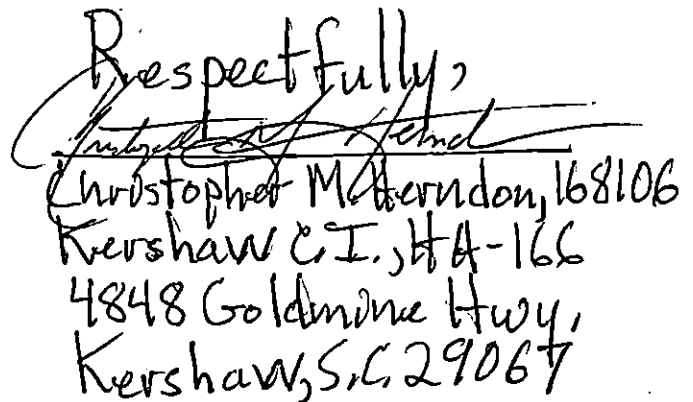 Respectfully,
Christopher M. Herndon
Christopher M. Herndon, 168106
Kershaw C.I., HA-166
4848 Goldmine Hwy,
Kershaw, S.C. 29067